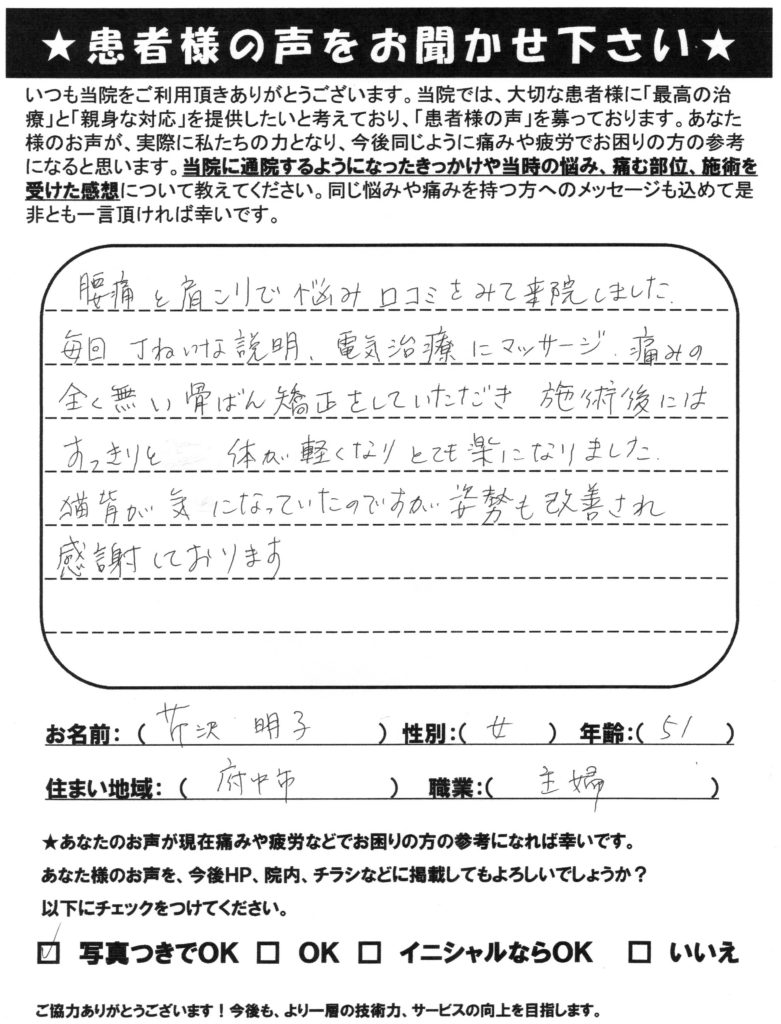 ★患者様の声をお聞かせ下さい★
いつも当院をご利用頂きありがとうございます。当院では、大切な患者様に「最高の治
療」と「親身な対応」を提供したいと考えており、「患者様の声」を募っております。あなた
様のお声が、実際に私たちの力となり、今後同じように痛みや疲労でお困りの方の参考
になると思います。当院に通院するようになったきっかけや当時の悩み、痛む部位、施術を
受けた感想について教えてください。同じ悩みや痛みを持つ方へのメッセージも込めて是
非とも一言頂ければ幸いです。
腰痛と肩こりで悩み口コミをみて来院しました。
毎回丁ねいな説明、電気治療にマッサージ、痛みの
全く無い骨ばん矯正をしていただき 施術後には
すっきりと 体が軽くなりとても楽になりました。
猫背が気になっていたのですが姿勢も改善され
感謝しております
お名前：（ 芹沢 明子 ） 性別：（ 女 ） 年齢：（ 51 ）
住まい地域：（ 府中市 ） 職業：（ 主婦 ）
★あなたのお声が現在痛みや疲労などでお困りの方の参考になれば幸いです。
あなた様のお声を、今後HP、院内、チラシなどに掲載してもよろしいでしょうか？
以下にチェックをつけてください。
☑ 写真つきでOK □ OK □ イニシャルならOK □ いいえ
ご協力ありがとうございます！今後も、より一層の技術力、サービスの向上を目指します。